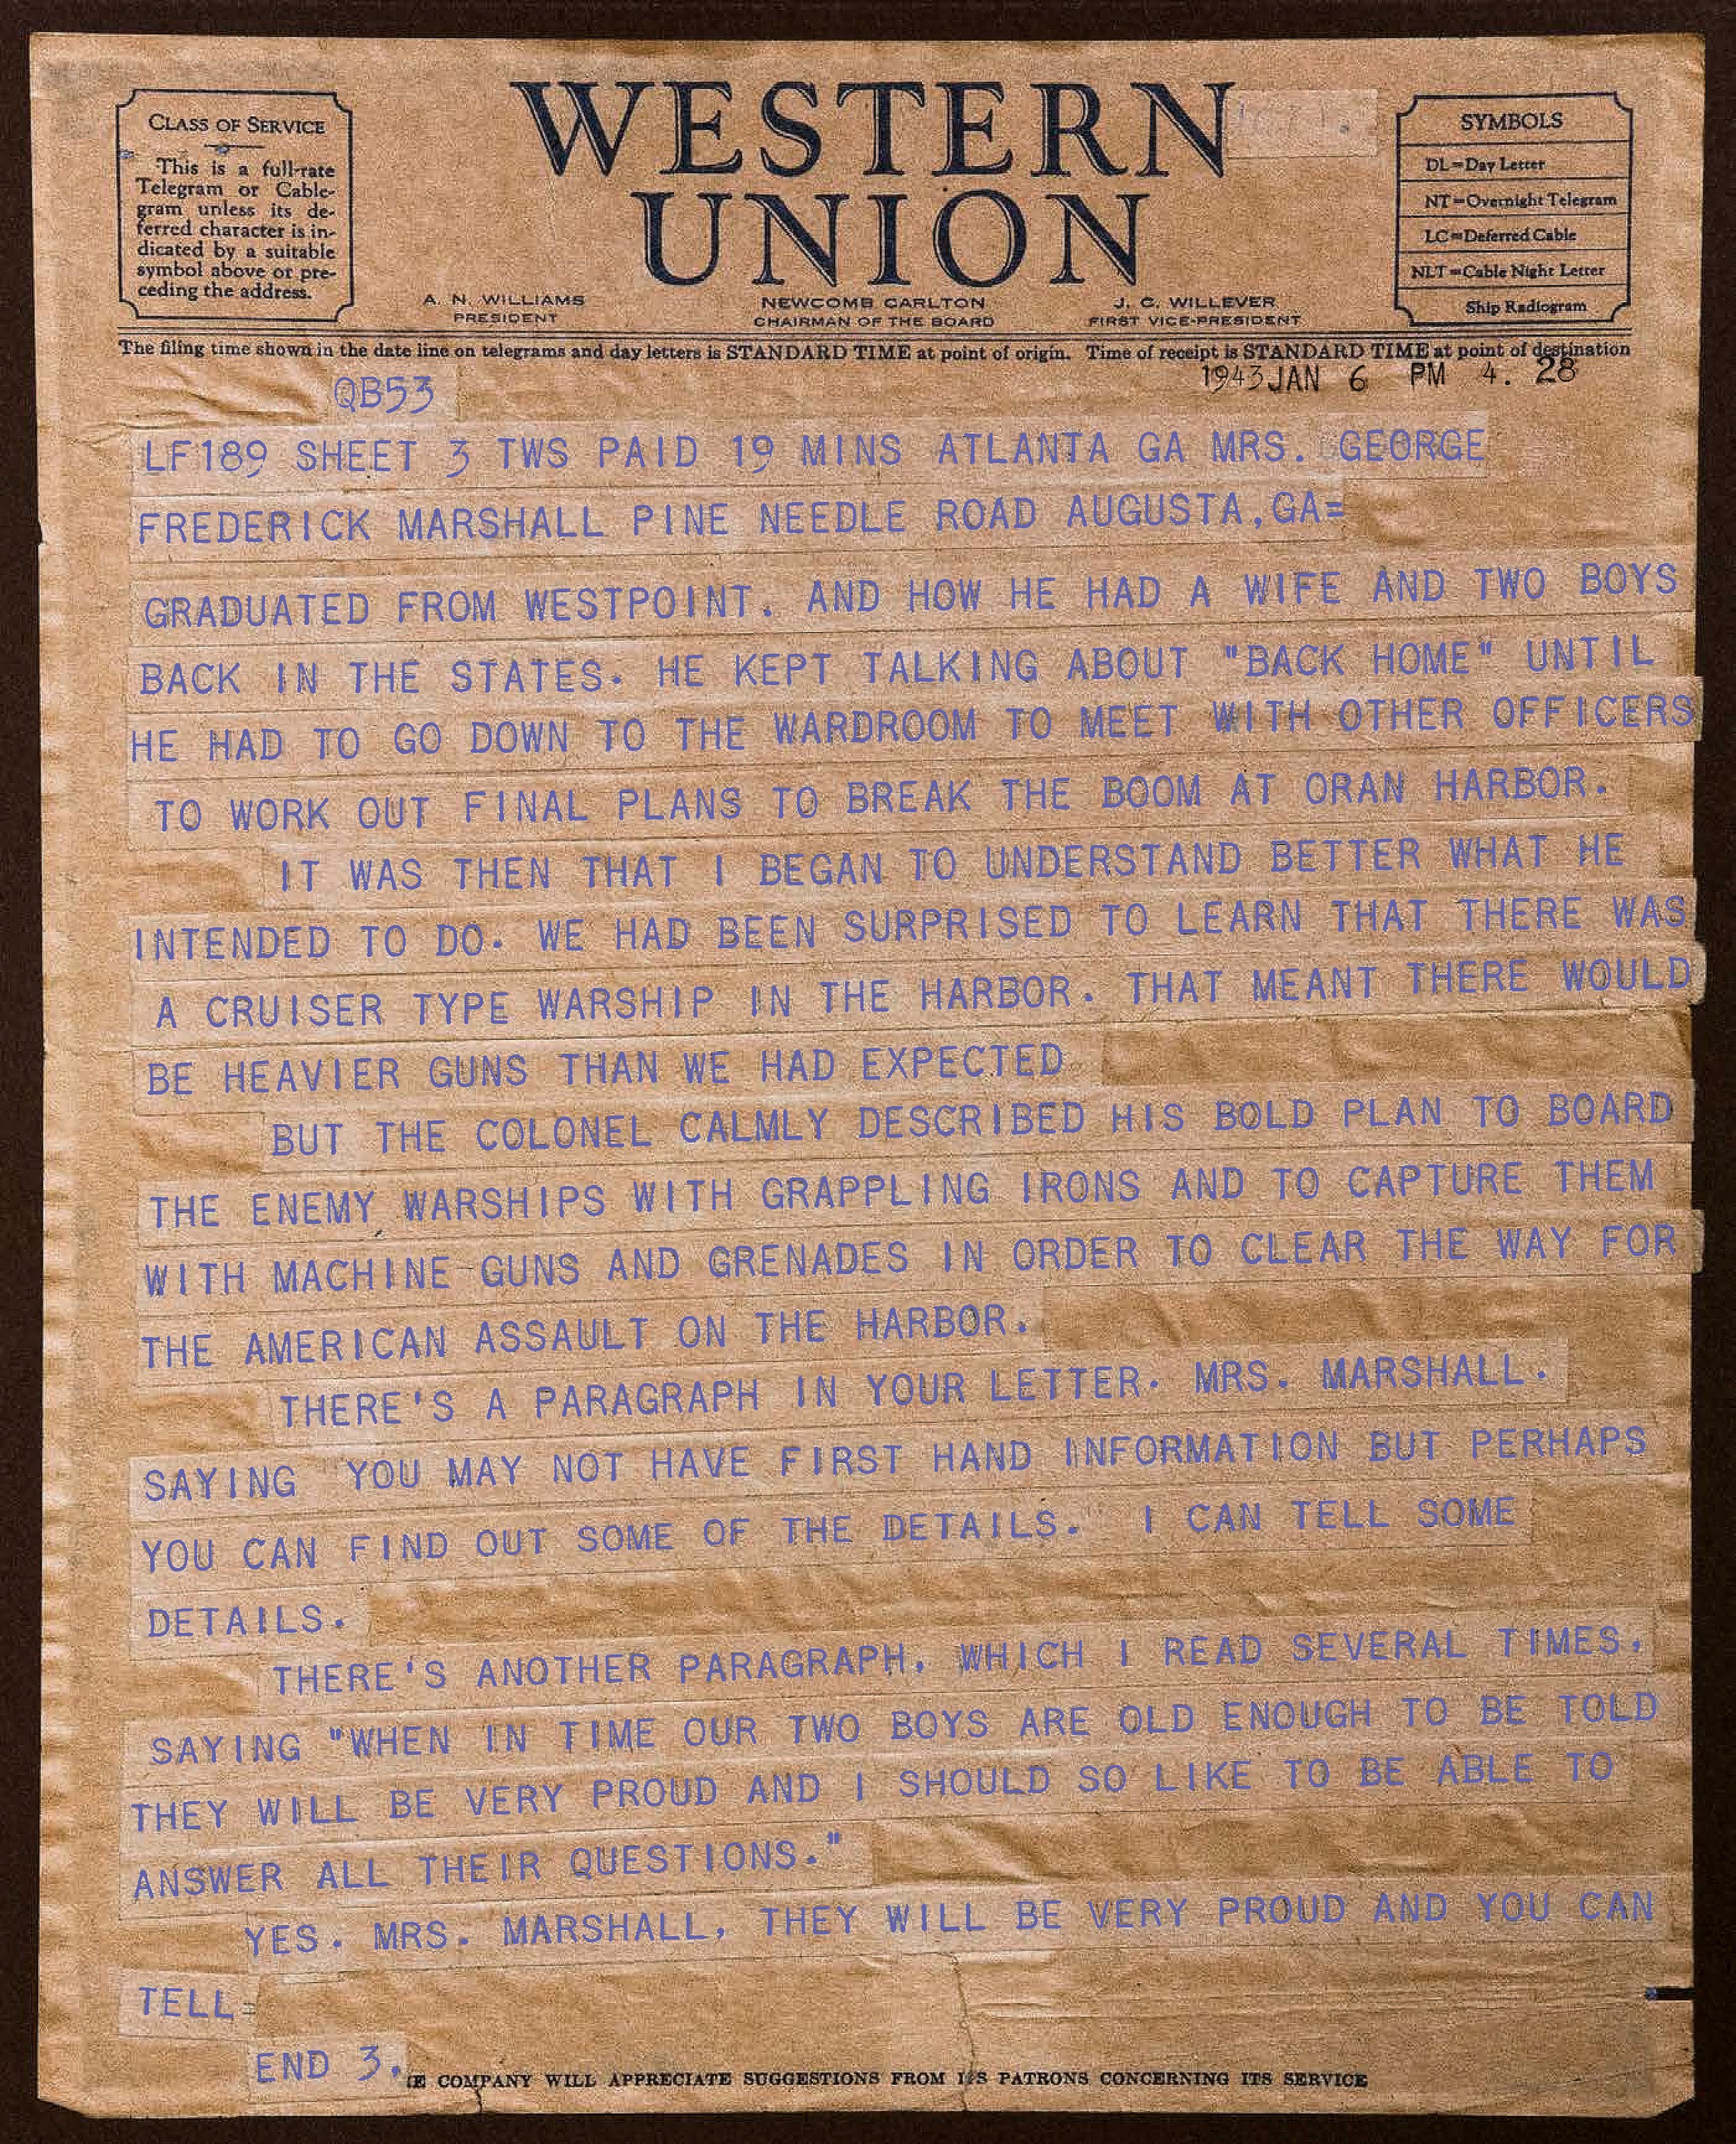 WESTERN
UNION
CLASS OF SERVICE
This is a full-rate
Telegram or Cable-
gram unless its de-
ferred character is in-
dicated by a suitable
symbol above or pre-
ceding the address.
SYMBOLS
DL=Day Letter
NT=Overnight Telegram
LC=Deferred Cable
NLT=Cable Night Letter
Ship Radiogram
A. N. WILLIAMS
PRESIDENT
NEWCOMB CARLTON
CHAIRMAN OF THE BOARD
J. C. WILLEVER
FIRST VICE-PRESIDENT
The filing time shown in the date line on telegrams and day letters is STANDARD TIME at point of origin. Time of receipt is STANDARD TIME at point of destination
QB53
1943 JAN 6 PM 4. 28
LF189 SHEET 3 TWS PAID 19 MINS ATLANTA GA MRS. GEORGE
FREDERICK MARSHALL PINE NEEDLE ROAD AUGUSTA,GA=
GRADUATED FROM WESTPOINT. AND HOW HE HAD A WIFE AND TWO BOYS
BACK IN THE STATES. HE KEPT TALKING ABOUT "BACK HOME" UNTIL
HE HAD TO GO DOWN TO THE WARDROOM TO MEET WITH OTHER OFFICERS
TO WORK OUT FINAL PLANS TO BREAK THE BOOM AT ORAN HARBOR.
IT WAS THEN THAT I BEGAN TO UNDERSTAND BETTER WHAT HE
INTENDED TO DO. WE HAD BEEN SURPRISED TO LEARN THAT THERE WAS
A CRUISER TYPE WARSHIP IN THE HARBOR. THAT MEANT THERE WOULD
BE HEAVIER GUNS THAN WE HAD EXPECTED
BUT THE COLONEL CALMLY DESCRIBED HIS BOLD PLAN TO BOARD
THE ENEMY WARSHIPS WITH GRAPPLING IRONS AND TO CAPTURE THEM
WITH MACHINE GUNS AND GRENADES IN ORDER TO CLEAR THE WAY FOR
THE AMERICAN ASSAULT ON THE HARBOR.
THERE'S A PARAGRAPH IN YOUR LETTER. MRS. MARSHALL.
SAYING YOU MAY NOT HAVE FIRST HAND INFORMATION BUT PERHAPS
YOU CAN FIND OUT SOME OF THE DETAILS." I CAN TELL SOME
DETAILS.
THERE'S ANOTHER PARAGRAPH, WHICH I READ SEVERAL TIMES,
SAYING "WHEN IN TIME OUR TWO BOYS ARE OLD ENOUGH TO BE TOLD
THEY WILL BE VERY PROUD AND I SHOULD SO LIKE TO BE ABLE TO
ANSWER ALL THEIR QUESTIONS."
YES. MRS. MARSHALL, THEY WILL BE VERY PROUD AND YOU CAN
TELL=
END 3.
COMPANY WILL APPRECIATE SUGGESTIONS FROM ITS PATRONS CONCERNING ITS SERVICE